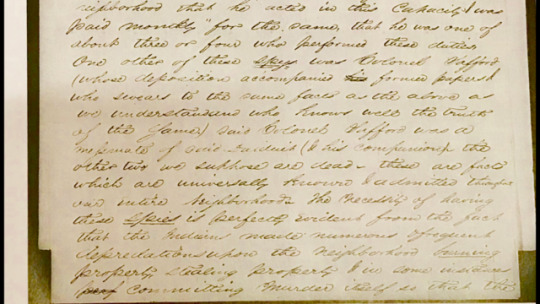 neighborhood that he acted in this Capacity & was
paid monthly for the same, that he was one of
about three or four who performed these duties
One other of these spies was Colonel
(whose deposition accompanies his former papers)
who swears to the same facts as the above as
we understand who knows well the truth
of the Same) said Colonel was a
messmate of said (& his companion). the
other two we suppose are dead - these are facts
which are universally known & admitted throughout
our entire Neighborhood. The necessity of having
these spies is perfectly evident from the fact
that the Indians made numerous & frequent
depredations upon the neighborhood burning
property, stealing property & in some instances
committing Murder itself so that this